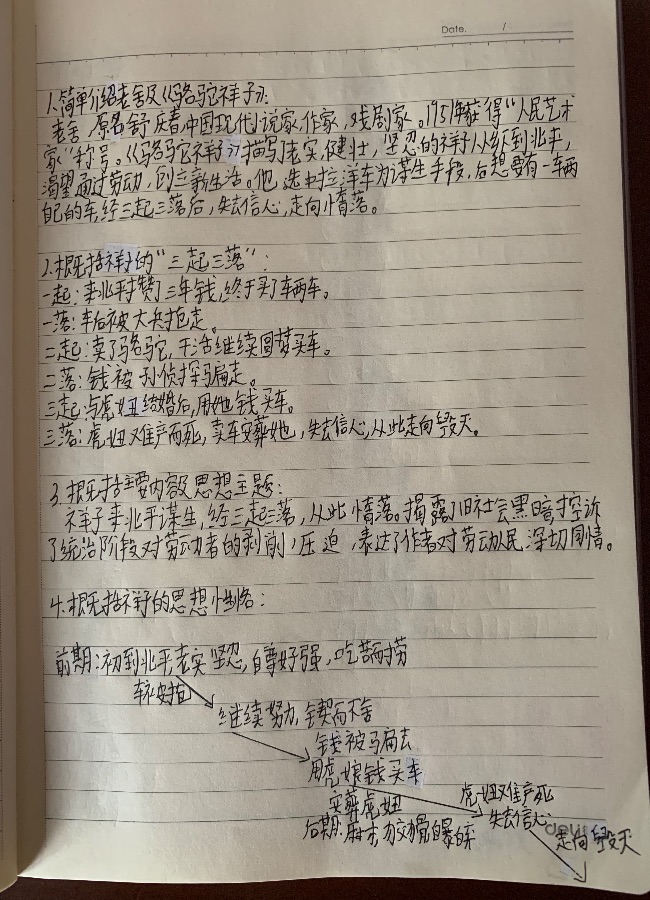 Date. /
1.简单介绍老舍及《骆驼祥子》:
老舍,原名舒庆春中国现代小说家,作家,戏剧家。1951年获得“人民艺术
家”称号。《骆驼祥子》描写老实,健壮,坚忍的祥子从乡到北平,
渴望通过劳动,创立新生活。他选中拉洋车为谋生手段,后想要有一车两
自己的车,经三起三落后,失去信心,走向堕落。
2.概括祥子的“三起三落”:
一起:来北平攒了三年钱,终于买了车两车。
一落:车后被大兵抱走。
二起:卖了骆驼,干活继续圆梦买车。
二落:钱被孙侦探骗走。
三起:与虎妞结婚后,用她钱买车。
三落:虎妞难产而死,卖车安葬她,失去信心,从此走向毁灭。
3.概括主要内容及思想主题:
祥子来北平谋生,经三起三落,从此堕落。揭露了旧社会黑暗控诉
了统治阶段对劳动者的剥削,压迫,表达了作者对劳动人民深切同情。
4.概括祥子的思想性格:
前期:初到北平,老实坚忍,自尊好强,吃苦耐劳
车被抱
继续努力,锲而不舍
钱被骗去
用虎娘钱买车
安葬虎妞
虎妞难产死
后期:麻木 狡猾 自暴自弃
失去信心
走向毁灭